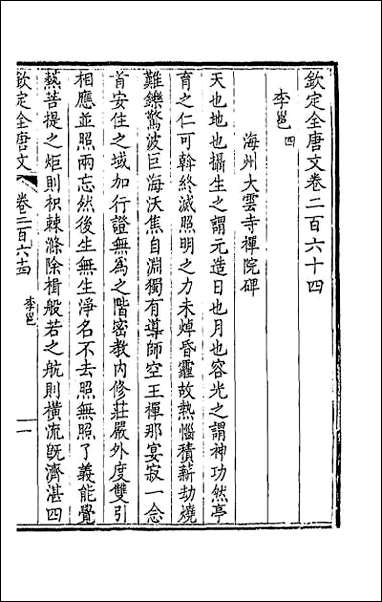 欽定全唐文卷二百六十四
李邕四
海州大雲寺禪院碑
天也地也攝生之謂元造日也月也容光之謂神功然亭
育之仁可斡終滅照明之力未焯昏霾故熱惱積薪劫燒
難鑠驚波巨海沃焦自淵獨有導師空王禪那宴寂一念
首安住之域加行證無為之階密教内修莊嚴外度雙引
相應並照兩忘然後生無生淨名不去照無照了義能覺
爇菩提之炬則枳棘滌除楫般若之航則橫流既濟湛四
欽定全唐文 卷二百六十四 李邕 一